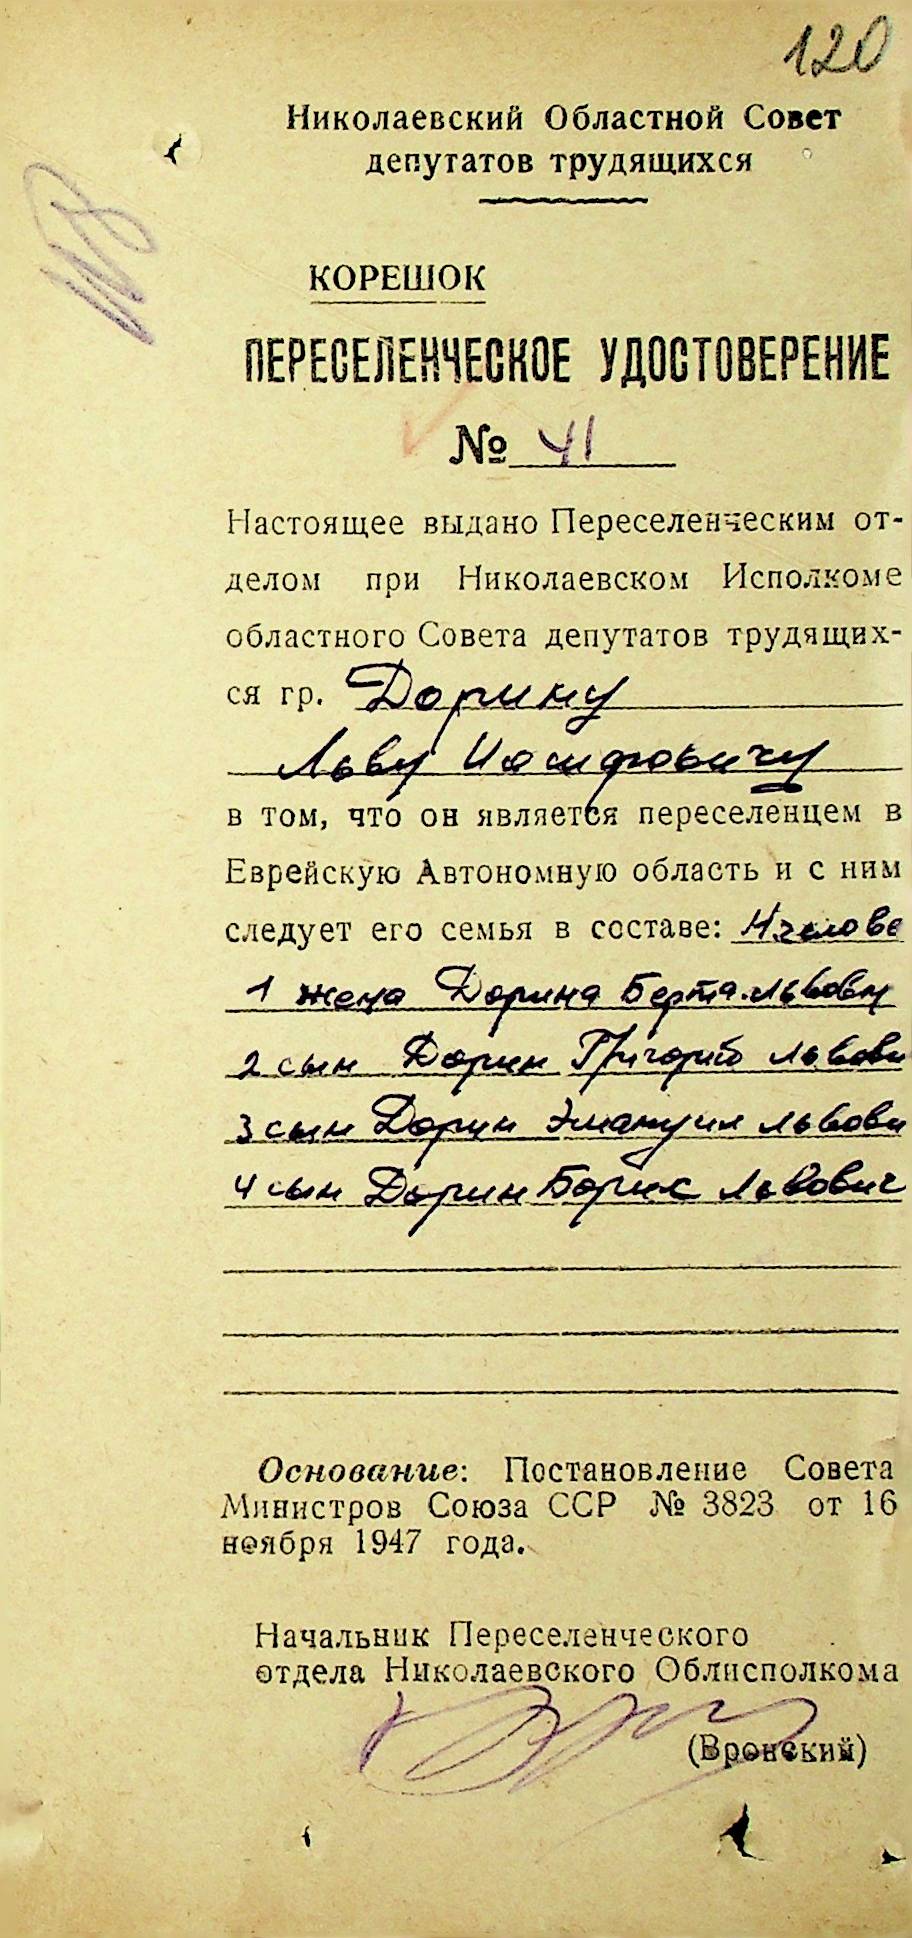 120
Николаевский Областной Совет
депутатов трудящихся
КОРЕШОК
ПЕРЕСЕЛЕНЧЕСКОЕ УДОСТОВЕРЕНИЕ
№ 41
Настоящее выдано Переселенческим от-
делом при Николаевском Исполкоме
областного Совета депутатов трудящих-
ся гр. Дорину
Льву Иосифовичу
в том, что он является переселенцем в
Еврейскую Автономную область и с ним
следует его семья в составе: 4 челове
1 жена Дорина Берта Львовн
2 сын Дорин Григорий Львови
3 сын Дорин Эмануил Львови
4 сын Дорин Борис Львович
Основание: Постановление Совета
Министров Союза ССР № 3823 от 16
ноября 1947 года.
Начальник Переселенческого
отдела Николаевского Облисполкома
(Вронский)